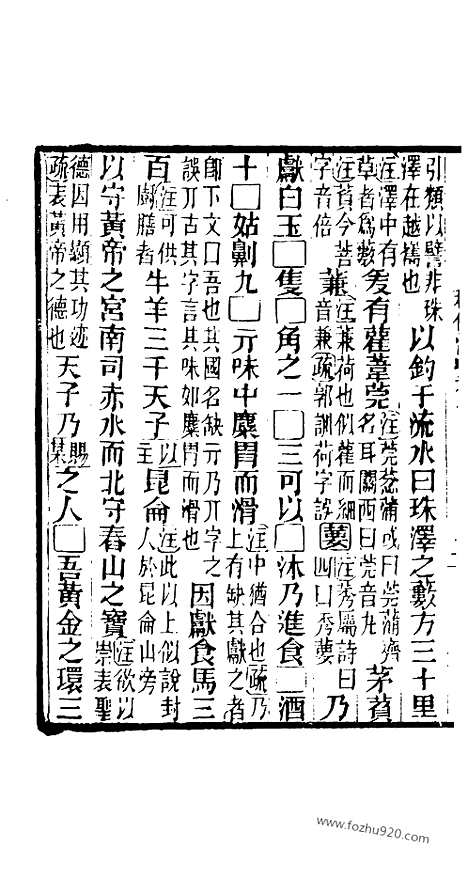 引類以譬非珠澤在越䙝也以釣于流水曰珠澤之藪方三十里
注澤中有草者為藪爰有雚葦莞注莞葱蒲或曰莞蒲齊名耳關西曰莞音丸茅萯
注萯今菩字音倍蒹注蒹荷也似雚而細音兼疏郭訓荷字誤葽注秀屬詩曰四囗秀葽乃
獻白玉□隻□角之一□三可以□沐乃進食□酒
十□姑劓九□亓味中麋胃而滑注中猶合也疏乃上有缺其獻之者
卽下文囗吾也其國名缺亓乃丌字之誤丌古其字言其味如麋胃而滑也因獻食馬三
百注可供獻膳者牛羊三千天子以注此以上似說封主昆侖人於昆侖山旁
以守黃帝之宮南司赤水而北守舂山之寶注欲以崇表聖
德因用顯其功迹疏表黃帝之德也天子乃賜某之人□吾黃金之環三
www.fozhu920.com